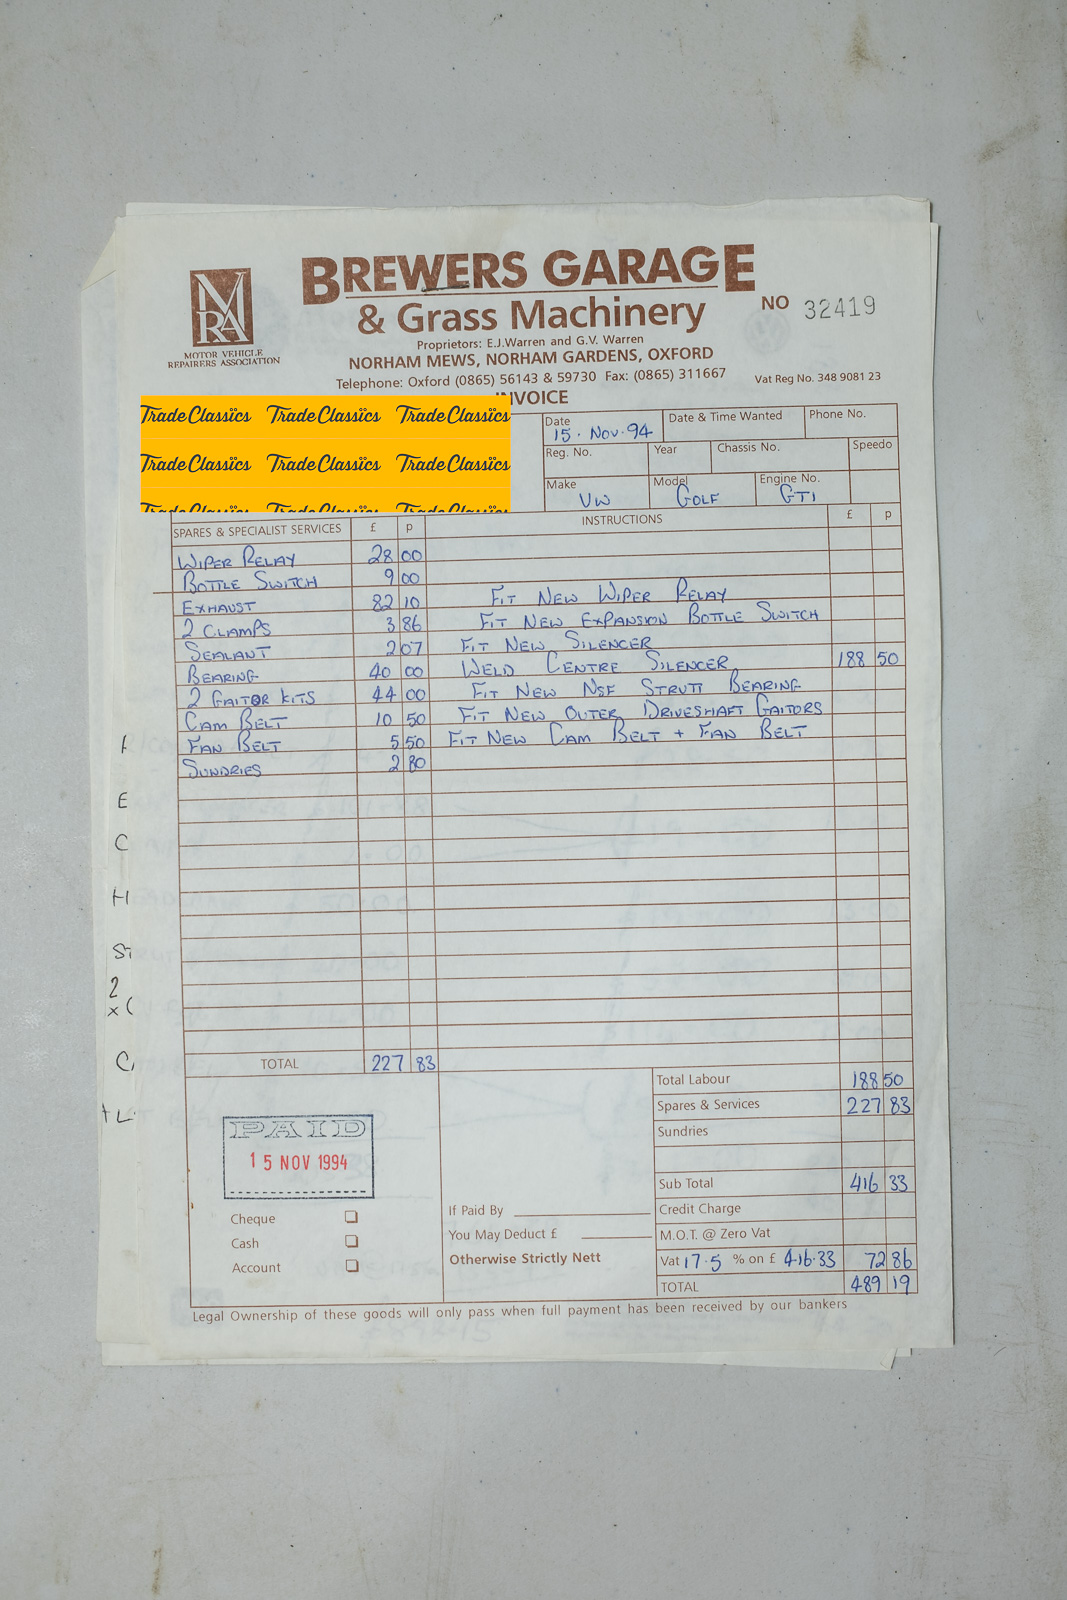 BREWERS GARAGE
& Grass Machinery
NO 32419
MVRA
MOTOR VEHICLE
REPAIRERS ASSOCIATION
Proprietors: E.J.Warren and G.V. Warren
NORHAM MEWS, NORHAM GARDENS, OXFORD
Telephone: Oxford (0865) 56143 & 59730 Fax: (0865) 311667
Vat Reg No. 348 9081 23
INVOICE
TradeClassics TradeClassics TradeClassics
TradeClassics TradeClassics TradeClassics
TradeClassics TradeClassics TradeClassics
Date 15. Nov. 94 Date & Time Wanted Phone No.
Reg. No. Year Chassis No. Speedo
Make VW Model GOLF Engine No. GTI
SPARES & SPECIALIST SERVICES £ p INSTRUCTIONS £ p
WIPER RELAY 28 00
BOTTLE SWITCH 9 00
EXHAUST 82 10 FIT NEW WIPER RELAY
2 CLAMPS 3 86 FIT NEW EXPANSION BOTTLE SWITCH
SEALANT 2 07 FIT NEW SILENCER
BEARING 40 00 WELD CENTRE SILENCER 188 50
2 GAITOR KITS 44 00 FIT NEW NSF STRUTT BEARING
CAM BELT 10 50 FIT NEW OUTER DRIVESHAFT GAITORS
FAN BELT 5 50 FIT NEW CAM BELT + FAN BELT
SUNDRIES 2 80
E
C
H
2
x
+ L
TOTAL 227 83
Total Labour 188 50
Spares & Services 227 83
Sundries
Sub Total 416 33
Credit Charge
M.O.T. @ Zero Vat
Vat 17.5 % on £ 416.33 72 86
TOTAL 489 19
PAID
15 NOV 1994
Cheque
Cash
Account
If Paid By
You May Deduct £
Otherwise Strictly Nett
Legal Ownership of these goods will only pass when full payment has been received by our bankers